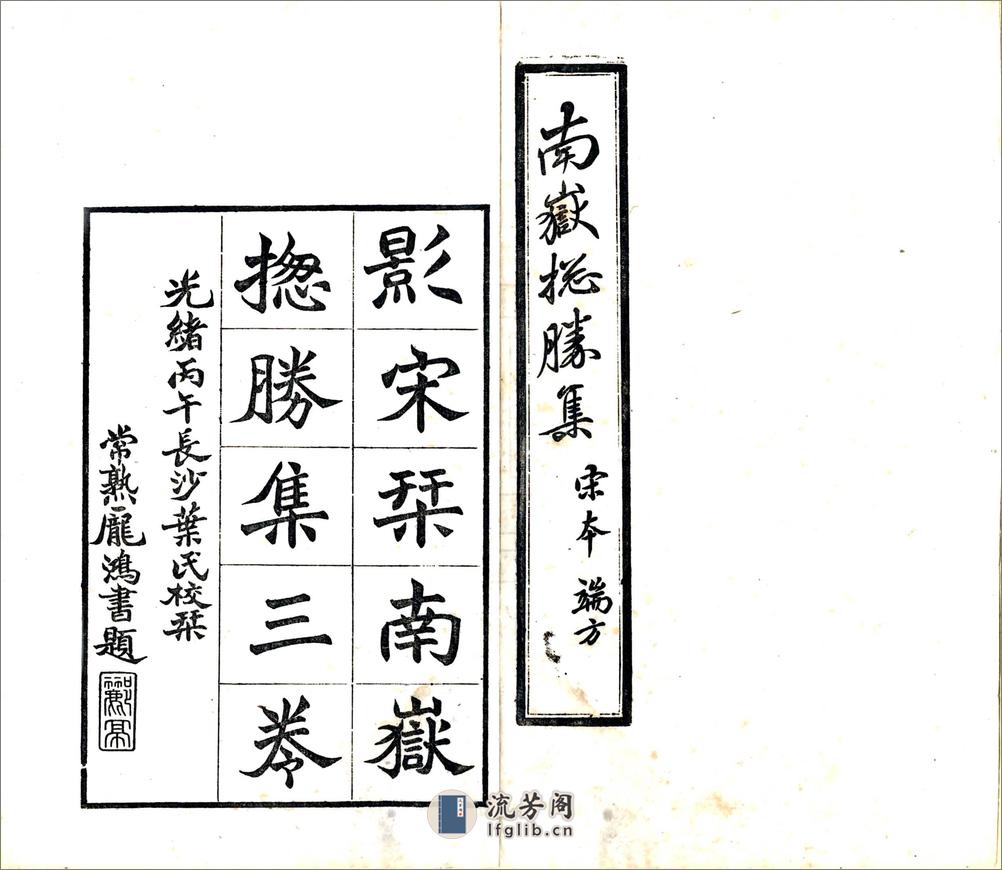 南嶽揔勝集 宋本 端方
影宋栞南嶽
揔勝集三卷
光緒丙午長沙葉氏校栞
常熟龐鴻書題
流芳阁
lfglib.cn